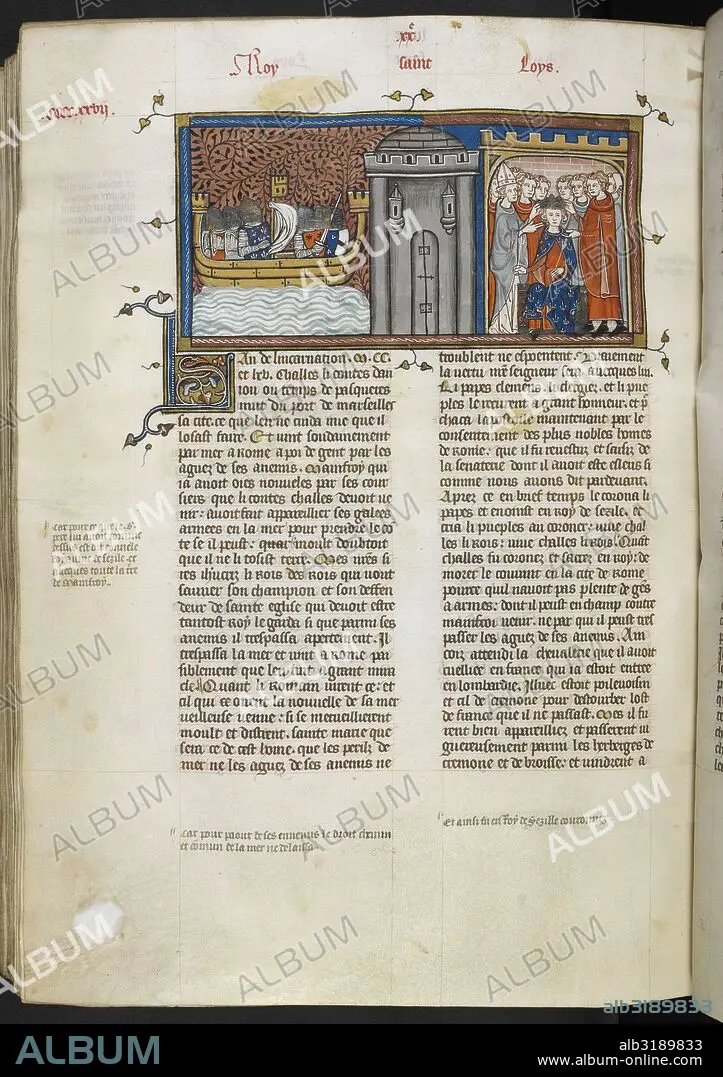 Roy
saint
Loys.
An de lincarnation. M. CC.
et lxv. Challes li contes dan
iou ou temps de pasqueres
mut du port de marseilles
sa cite. ce que len ne cuida mie que il
losast faire. Et vint soudainement
par mer a Rome a poi de gent par les
aguez de ses anemis. Mainfroy qui
ia auoit oies nouueles par ses cour
siers que li contes challes deuoit ve
nir: auoit fait appareillier ses galees
armees en la mer pour prendre le co
te se il peust. quar moult doubtoit
que il ne li tosist terre. Mes nres si
res ihesucrz li Rois des Rois qui vout
sauuer son champion et son deffen
deur de sainte eglise qui deuoit estre
tantost Roy le garda si que parmi ses
anemis il trespassa apertement. Il
trespassa la mer et vint a Rome pai
siblement que len tint a grant mira
cle. Quant li Romain virent ce: et
cil qui ce oirent la nouuelle de sa mer
ueilleuse venue: si se merueillierent
moult et distrent. sainte marie que
sera ce de cest home. que les perilz de
mer ne les aguez de ses anemis ne
troublent ne espoentent. Vraiement
la vertu nre seigneur sera auecques lui.
Li papes clemens. li clergiez. et li pue
ples le recurent a grant honneur. et
chaca la maintenant par le
consentement des plus nobles homes
de Rome: que il fu reuestuz et saisiz de
la senaterie dont il auoit este esleus si
comme nous auons dit par deuant.
Apres ce en brief temps le corona li
papes et enoinst en roy de sezile. et
cria li pueples au coroner: viue chal
les li Rois: viue challes li Rois. Quant
challes fu coronez et sacrez en roy: de
morer le couuint en la cite de Rome
pource quil nauoit pas plente de gens
a armes: dont il peust en champ contre
mainfroi venir. ne par qui il peust tres
passer les aguez de ses anemis. Ain
coiz attendi la cheualerie que il auoit
cueillie en france qui ia estoit entree
en lombardie. Illuec estoit poileuoisin
et cil de cremone pour destourber lost
de france que il ne passast. Mes il fu
rent bien appareilliez et passerent vi
guereusement parmi les herberges de
cremone et de brosse: et vindrent a
Car pour ce que le s.
pere lui auoit comme
dessus est dit donne le
royaume de sezile. et
auecques toute la tre
de Mainfroy.
Car pour paour de ses ennemis le droit chemin
et comun de la mer ne delaissa.
Et ainsi fu en Roy de Sezille couronnez
ALBUM
alb3189833
ALBUM
alb3189833
www.album-online.com